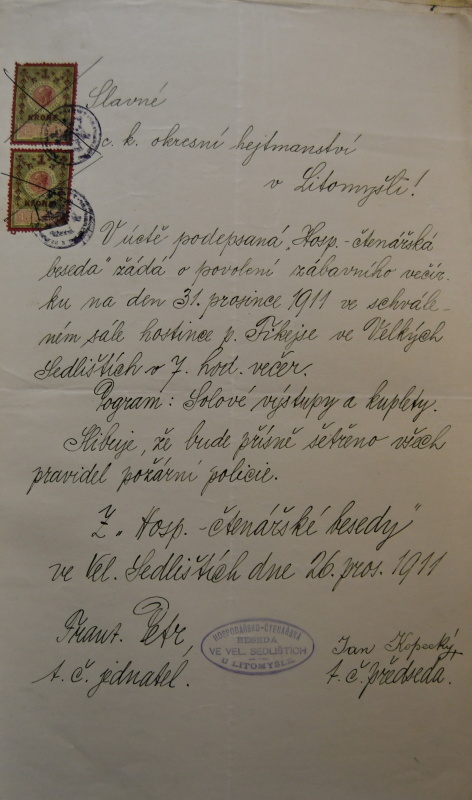 1
KRONE
1
KRONE
Slavné
c. k. okresní hejtmanství
v Litomyšli!
V úctě podepsaná „Hosp.-čtenářská
beseda" žádá o povolení zábavního večír-
ku na den 31. prosince 1911 ve schvále-
ném sále hostince p. Fikejse ve Velkých
Sedlištích o 7. hod. večer.
Pogram: Solové výstupy a kuplety.
Slibuje, že bude přísně šetřeno všech
pravidel požární policie.
Z „Hosp.-čtenářské besedy"
ve Vel. Sedlištích dne 26. pros. 1911
Frant. Petr,
t. č. jednatel.
HOSPODÁŘSKO-ČTENÁŘSKÁ
BESEDA
VE VEL. SEDLIŠTÍCH
U LITOMYŠLE
Jan Kopecký
t. č. předseda.